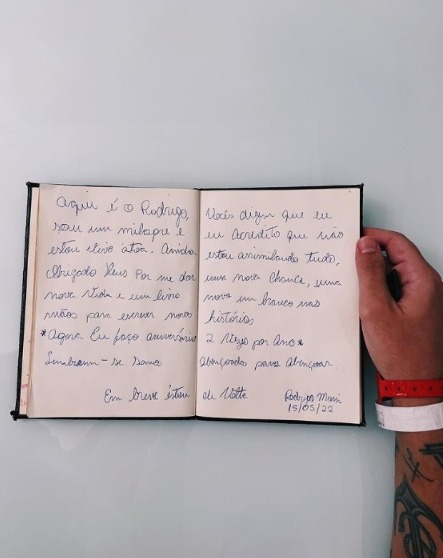 Aqui é o Rodrigo, Vocês dizem que eu
sou um milagre e eu Acredito que não
estou vivo atoa. Ainda estou assimilando tudo,
Obrigado Deus Por me dar uma nova chance, uma
nova vida e um livro novo em branco nas
mãos para escrever novas histórias
*Agora Eu faço aniversário 2 vezes por Ano*
Lembram-se somos abençoados para abençoar.
Em breve estou de Volta
Rodrigo
15/05/22